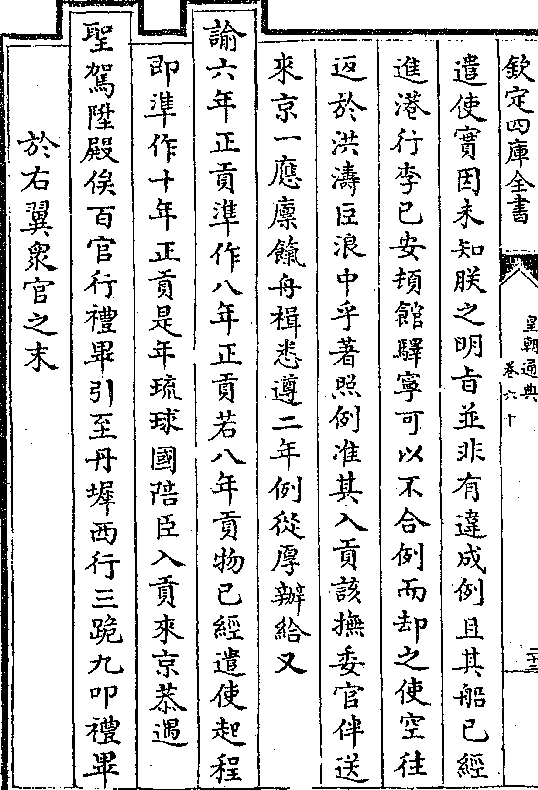 欽定四庫全書
皇朝通典
卷六十
遣使實因未知朕之明旨並非有違成例且其船已經
進港行李已安頓館驛寧可以不合例而却之使空往
返於洪濤巨浪中乎著照例准其入貢該撫委官伴送
來京一應廪餼舟楫悉遵二年例從厚辦給又
諭六年正貢準作八年正貢若八年貢物已經遣使起程
即準作十年正貢是年琉球國陪臣入貢來京恭遇
聖駕陞殿俟百官行禮畢引至丹墀西行三跪九叩禮畢
於右翼衆官之末